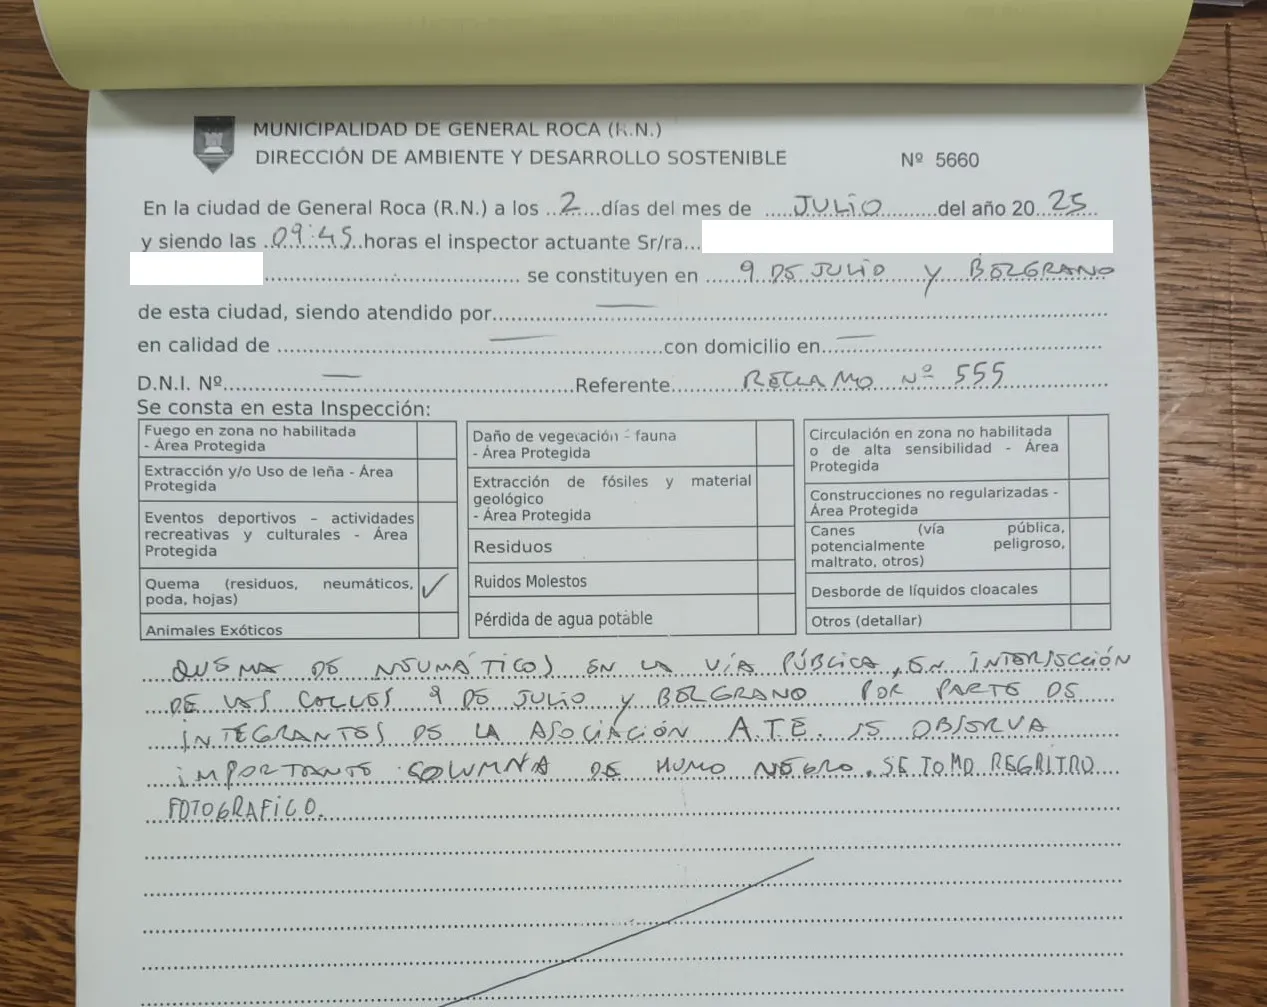 MUNICIPALIDAD DE GENERAL ROCA (R.N.)
DIRECCIÓN DE AMBIENTE Y DESARROLLO SOSTENIBLE Nº 5660
En la ciudad de General Roca (R.N.) a los ..2...días del mes de .....JULIO.........del año 20..25....
y siendo las .09:45..horas el inspector actuante Sr/ra...
se constituyen en ......9 DE JULIO y BELGRANO
de esta ciudad, siendo atendido por.... — ....
en calidad de .... — ....con domicilio en.... — ....
D.N.I. Nº.... — ....Referente.... RECLAMO Nº 555 ....
Se consta en esta Inspección:
Fuego en zona no habilitada
- Área Protegida
Extracción y/o Uso de leña - Área
Protegida
Eventos deportivos – actividades
recreativas y culturales - Área
Protegida
Quema (residuos, neumáticos,
poda, hojas) ✓
Animales Exóticos
Daño de vegetación - fauna
- Área Protegida
Extracción de fósiles y material
geológico
- Área Protegida
Residuos
Ruidos Molestos
Pérdida de agua potable
Circulación en zona no habilitada
o de alta sensibilidad - Área
Protegida
Construcciones no regularizadas -
Área Protegida
Canes (vía pública,
potencialmente peligroso,
maltrato, otros)
Desborde de líquidos cloacales
Otros (detallar)
QUEMA DE NEUMÁTICOS EN LA VÍA PÚBLICA, EN INTERSECCIÓN
DE LAS CALLES 9 DE JULIO y BELGRANO POR PARTE DE
INTEGRANTES DE LA ASOCIACIÓN A.T.E. SE OBSERVA
IMPORTANTE COLUMNA DE HUMO NEGRO. SE TOMO REGRITRO
FOTOGRAFICO.